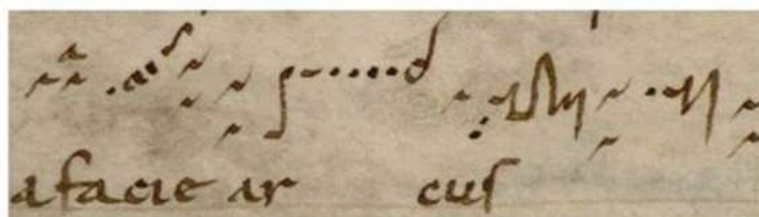 afacie ar cuſ